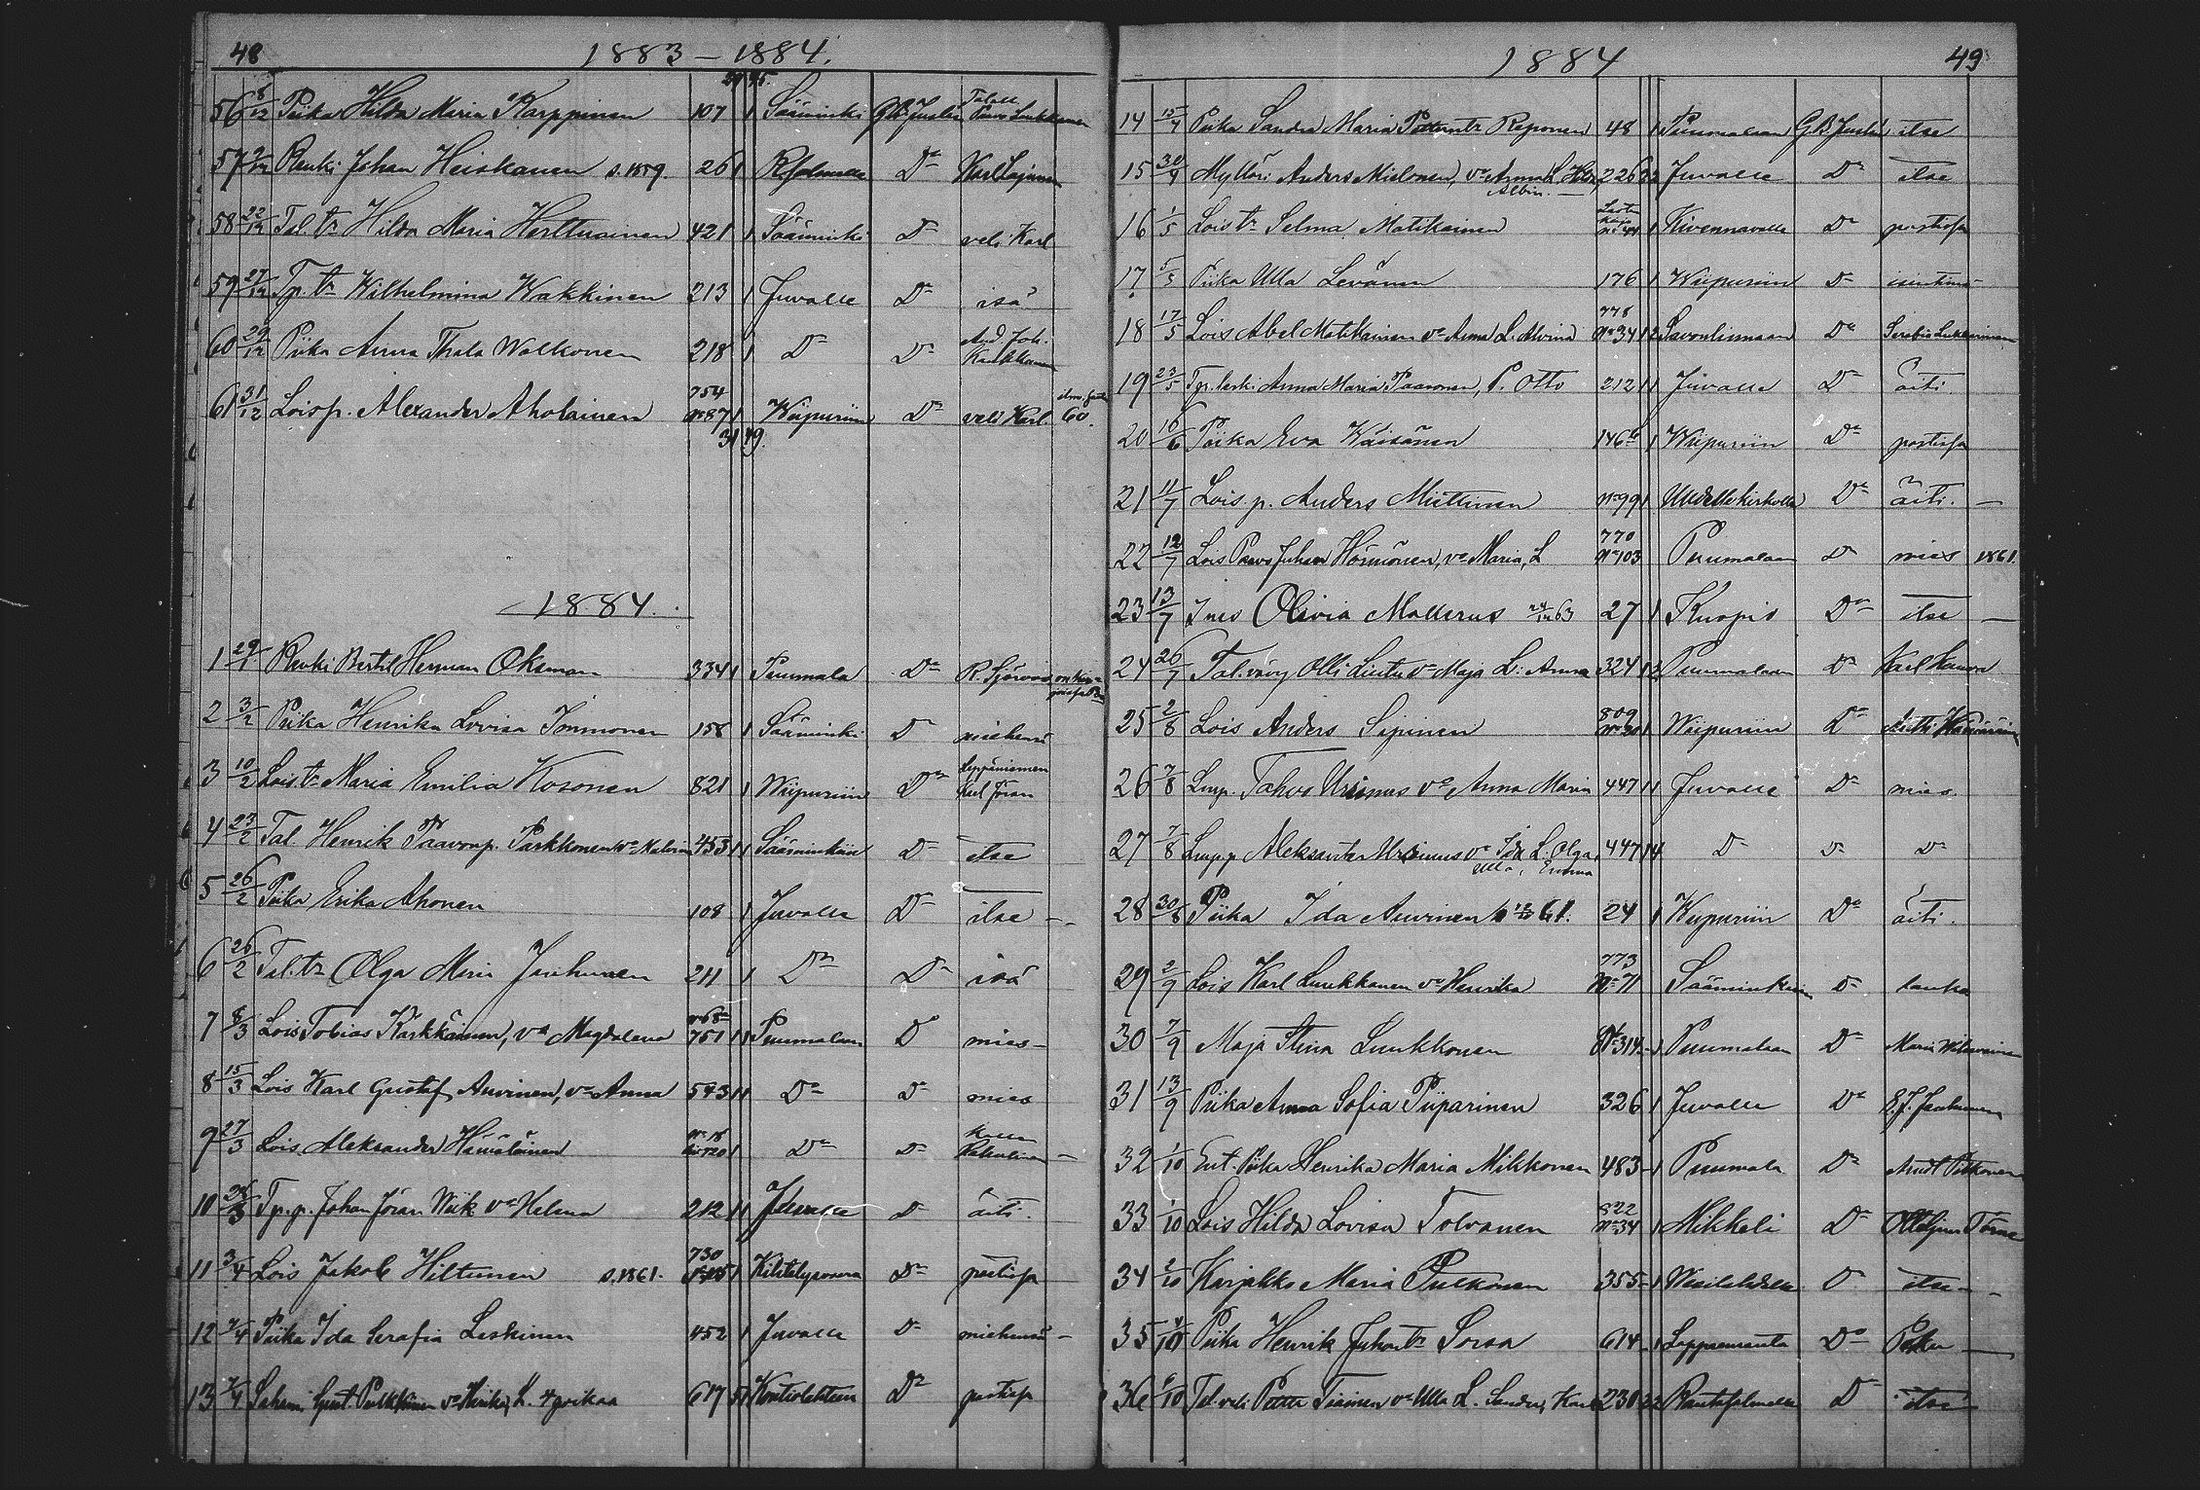 48 1883–1884.
29 45
56 8/12 Piika Hilda Maria Karppinen 107 1 Sääminki G.B. Juslin
57 9/12 Renki Johan Heiskanen s. 1859. 26 1 Karl
58 22/12 Tal. tr Hilda Maria Herttuainen 421 1 Sääminki Do veli Karl
59 27/12 Tp. tr Wilhelmina Wakkinen 213 1 Juvalle Do isä
60 29/12 Piika Anna Walkonen 218 1 Do Do And. Joh.
61 31/12 Lois p. Alexander Aholainen 754 No 87 1 Wiipuriin Do veli Karl 60.
31 49.
1884.
1 29/1 Renki Bertil Herman Oksman 334 1 Puumala Do
2 3/2 Piika Henrika Lovisa Immonen 158 1 Sääminki Do miehensä
3 10/2 Lois. tr Maria Emilia Kosonen 821 1 Wiipuriin Do
4 23/2 Tal. Henrik Paavonp. Parkkonen vo 453 1 1 Sääminkiin Do itse
5 26/2 Piika Erika Ahonen 108 1 Juvalle Do itse –
6 26/2 Tal. tr Olga Maria Janhunen 211 1 Do Do isä
7 8/3 Lois Tobias Karkkainen, vo Magdalena 751 1 1 Puumalaan Do mies –
8 15/3 Lois Karl Gustaf Auvinen, vo Anna 543 1 1 Do Do mies
9 27/3 Lois Aleksander Hämäläinen 1 Do Do –
10 Tp. p. Johan Göran Wiik vo Helena 212 1 1 Juvalle Do äiti.
11 3/4 Lois Jakob Hiltunen s. 1861. 730 1 Do postissa
12 7/4 Piika Ida Serafia Leskinen 452 1 Juvalle Do miehensä –
13 7/4 Gust. Pulkkinen vo L. 4 poikaa 617 51 Kontiolahteen Do postissa
1884 49
14 15/4 Piika Sandra Maria Reponen 48 1 Puumalaan G.B. Juslin itse
15 30/4 Mylläri Anders Mielonen, vo Anna L. 226 22 Juvalle Do itse
Albin.
16 1/5 Lois tr Selma Matikainen 1 Kivennavalle Do postissa
17 5/5 Piika Ulla Levänen 176 1 Wiipuriin Do
18 17/5 Lois Abel Matikainen vo Anna L. Alvina 778 No 34 12 Savonlinnaan Do
19 23/5 Tp. leski Anna Maria Paasonen, P. Otto 212 11 Juvalle Do äiti
20 16/6 Piika Eva Wäisänen 146 1 Wiipuriin Do postissa
21 11/7 Lois. p. Anders Miettinen No 99 1 Uudellekirkolle Do äiti. –
22 12/7 Lois Paavo Juhana Hörmönen, vo Maria, L 770 No 103 Puumalaan Do mies 1861.
23 13/7 Ines Olivia Mallerus 63 27 1 Kuopio Do itse –
24 26/7 Tal. vävy Olli Lintu vo Maja L: Anna 324 12 Puumalaan Do Karl
25 2/8 Lois Anders Sipinen 809 1 Wiipuriin Do Antti
26 7/8 Lmp. Tahvo Ursinus vo Anna Maria 447 11 Juvalle Do mies
27 7/8 Lmp. p. Aleksander Ursinus vo Ida L. Olga, 447 14 Do Do Do
Ulla, Emma
28 30/8 Piika Ida Auvinen 61. 24 1 Wiipuriin Do äiti.
29 2/9 Lois Karl Luukkanen vo Henrika 773 No 71 Sääminkiin Do
30 7/9 Maja Stina Luukkonen 314 1 Puumalaan Do Maria
31 13/9 Piika Anna Sofia Piiparinen 326 1 Juvalle Do
32 1/10 Ent. Piika Henrika Maria Mikkonen 483 – 1 Puumala Do Pitkonen
33 1/10 Lois Hilda Lovisa Tolvanen 822 No 34 1 Mikkeli Do
34 2/10 Karjakko Maria Pulkonen 355 – 1 Do itse –
35 Piika Henrik Juhontr Sorsa 614 – 1 Lappeenranta Do –
36 Tal. veli Petter Tiainen vo Ulla L. Sandra, Karl 230 22 Rantasalmelle Do itse